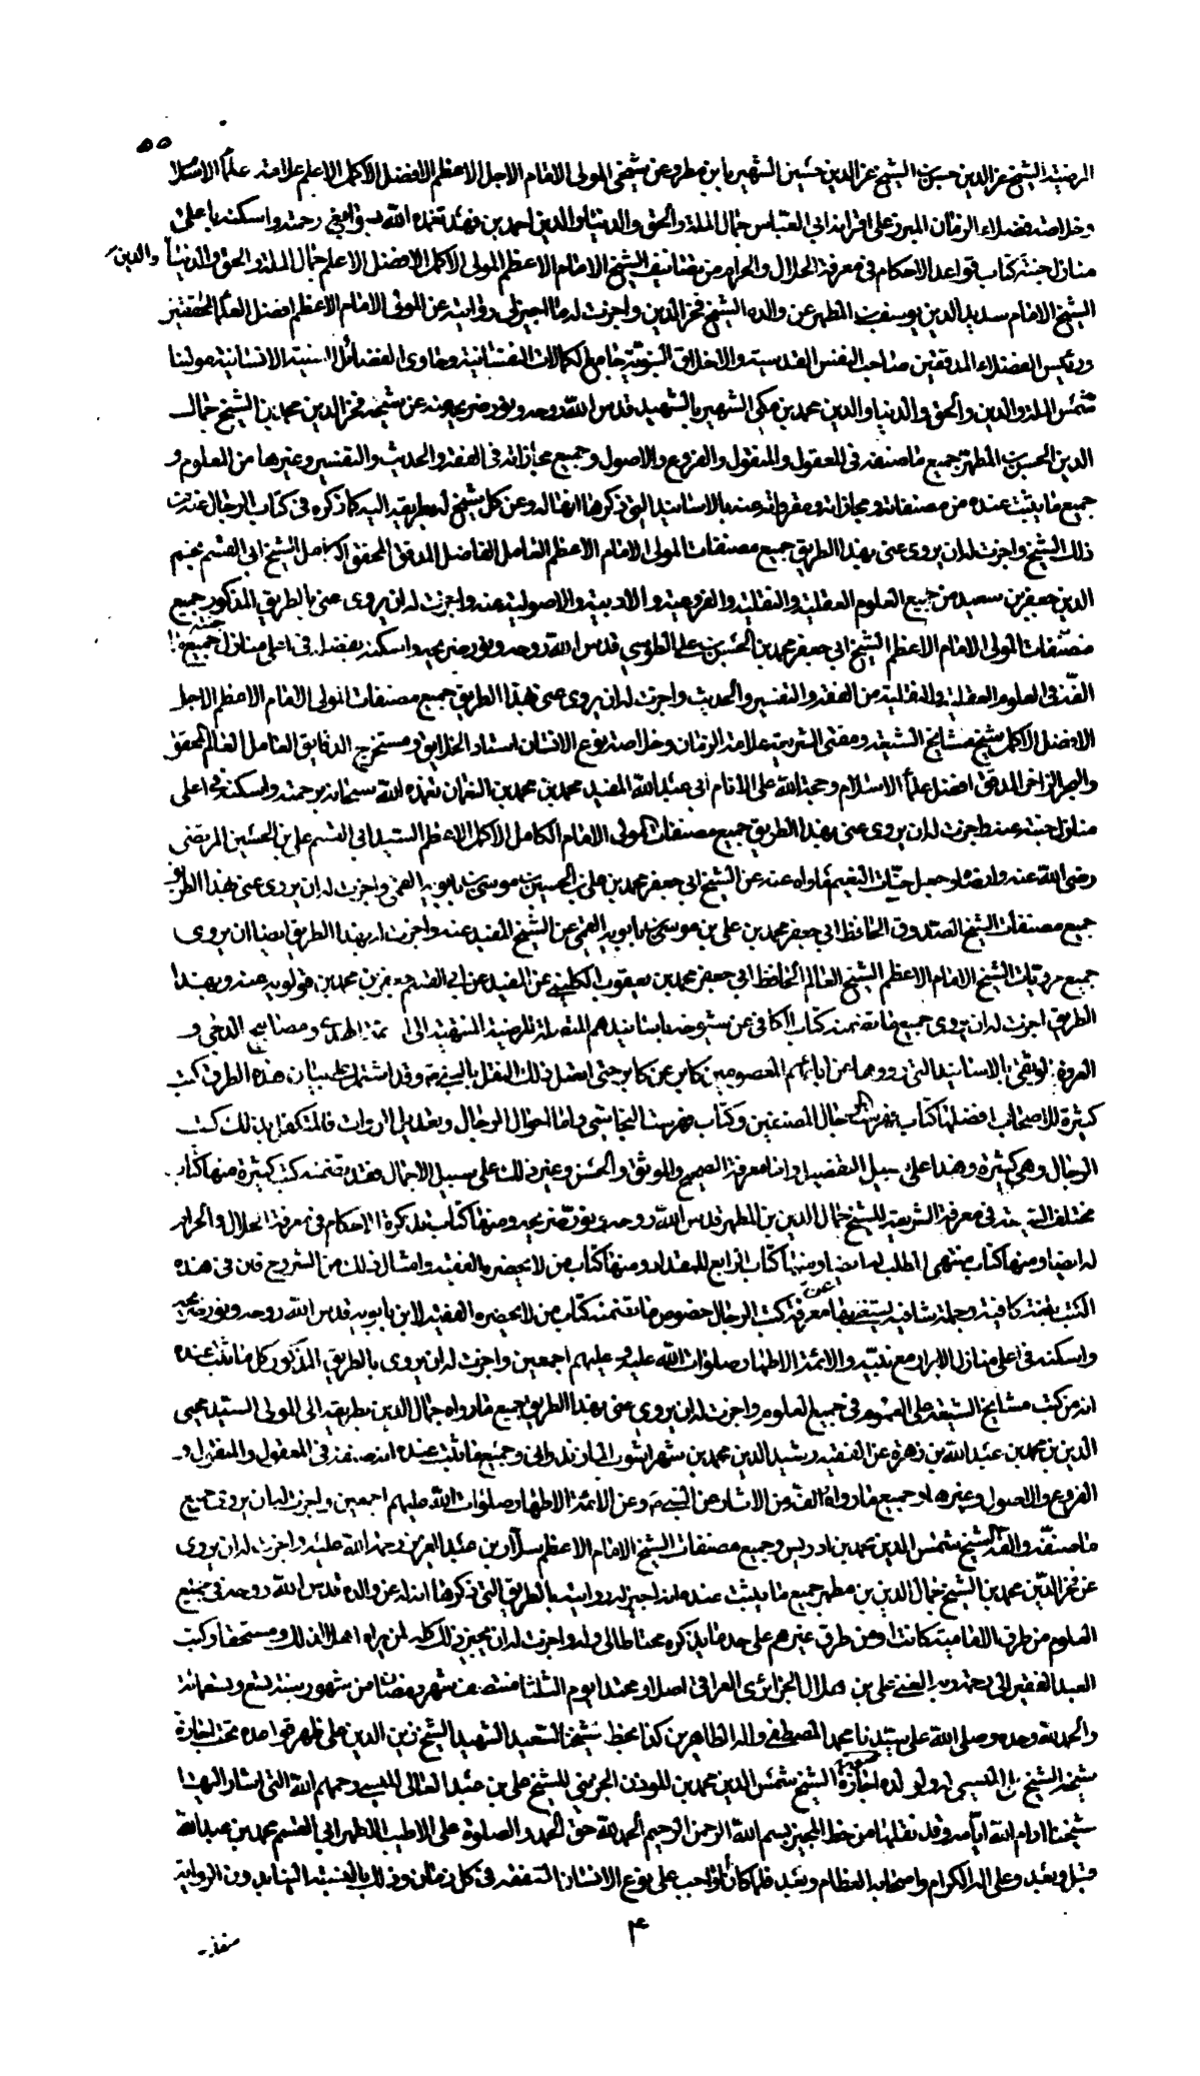 ٥٥
المرضية الشيخ عز الدين حسن بن الشيخ عز الدين حسين الشهير بابن مطر وعن شيخي المولى الامام الاجل الاعظم الافضل الاكمل الاعلم علامة علماء الاسلام
وخلاصة فضلاء الزمان المبرز على اقرانه ابي العباس جمال الملة والحق والدنيا والدين احمد بن فهد تغمده الله بسوابغ رحمته واسكنه باعلى
منازل جنته كتاب قواعد الاحكام في معرفة الحلال والحرام من تصانيف الشيخ الامام الاعظم المولى الاكمل الافضل الاعلم جمال الملة والحق والدنيا والدين
الشيخ الامام سديد الدين يوسف بن المطهر عن والده الشيخ فخر الدين واجزت له ما اجيز لي روايته عن المولى الامام الاعظم افضل العلماء المحققين
ورئيس الفضلاء المدققين صاحب النفس القدسية والاخلاق النبوية جامع الكمالات النفسانية وحاوي الفضائل السنية الانسانية مولينا
شمس الملة والدين والحق والدنيا والدين محمد بن مكي الشهير بالشهيد قدس الله روحه ونور ضريحه عن شيخه فخر الدين محمد بن الشيخ جمال
الدين الحسن بن المطهر جميع ما صنفه في المعقول والمنقول والفروع والاصول وجميع مجازاته في الفقه والحديث والتفسير وغيرها من العلوم و
جميع ما يثبت عنده من مصنفاته ومجازاته ومقرواته عنه بالاسانيد التي ذكرها انها له وعن كل شيخ له بطريقه اليه كما ذكره في كتاب الرجال عنه
ذلك الشيخ واجزت له ان يروي عني بهذا الطريق جميع مصنفات المولى الامام الاعظم العامل الفاضل المدقق المحقق الكامل الشيخ ابي القسم نجم
الدين جعفر بن سعيد من جميع العلوم العقلية والنقلية والفروعية والادبية والاصولية عنه واجزت له ان يروي عني بالطريق المذكور جميع
مصنفات المولى الامام الاعظم الشيخ ابي جعفر محمد بن الحسن بن علي الطوسي قدس الله روحه ونور ضريحه واسكنه بفضله في اعلى منازل جنته جميع ما
الفه في العلوم العقلية والنقلية من الفقه والتفسير والحديث واجزت له ان يروي عني بهذا الطريق جميع مصنفات المولى الامام الاعظم الاجل
الافضل الاكمل شيخ مشايخ الشيعة ومفتي الشريعة علامة الزمان وخلاصة نوع الانسان استاد الخلايق ومستخرج الدقايق العامل العالم المحقق
والبحر الزاخر المدقق افضل علماء الاسلام وحجة الله على الانام ابي عبد الله المفيد محمد بن محمد بن النعمان تغمده الله سبحانه برحمته واسكنه في اعلى
منازل جنته عنه واجزت له ان يروي عني بهذا الطريق جميع مصنفات المولى الامام الكامل الاكمل الاعظم السيد ابي القسم علي بن الحسين المرتضى
رضي الله عنه وارضاه وجعل جنات النعيم ماواه عنه عن الشيخ ابي جعفر محمد بن علي بن الحسين بن موسى بن بابويه القمي واجزت له ان يروي عني بهذا الطريق
جميع مصنفات الشيخ الصدوق الحافظ ابي جعفر محمد بن علي بن موسى بن بابويه القمي عن الشيخ المفيد عنه واجزت له بهذا الطريق ايضا ان يروي
جميع مرويات الشيخ الامام الاعظم الشيخ العالم الحافظ ابي جعفر محمد بن يعقوب الكليني عن المفيد عن ابي القسم جعفر بن محمد بن قولويه عنه وبهذا
الطريق اجزت له ان يروي جميع ما تضمنه كتاب الكافي عن شيوخه باسانيدهم المتصلة المرضية المنتهية الى ائمة الهدى ومصابيح الدجى و
العروة الوثقى بالاسانيد التي رووها عن ابائهم المعصومين كابر عن كابر حتى اتصل ذلك النقل بالنبي ص وقد اشتمل على بيان هذه الطرق كتب
كثيرة للاصحاب افضلها كتاب فهرست حال المصنفين وكتاب فهرست النجاشي واما احوال الرجال وتعديل الروات فالمتكفل بذلك كتب
الرجال وهي كثيرة وهذا على سبيل التفصيل واما معرفة الصحيح والموثق والحسن وغير ذلك على سبيل الاجمال فقد تضمنه كتب كثيرة منها كتاب
مختلف الشيعة في معرفة الشريعة للشيخ جمال الدين بن المطهر قدس الله روحه ونور ضريحه ومنها كتاب تذكرة الاحكام في معرفة الحلال والحرام
له ايضا ومنها كتاب منتهى المطلب له ايضا ومنها كتاب الرايع للمقداد ومنها كتاب من لا يحضره الفقيه وامثال ذلك من الشروح فان في هذه
الكتب بلغة كافية وجملة شافية يستغنى بها عن معرفة كتب الرجال خصوصا ما تضمنه كتاب من لا يحضره الفقيه لابن بابويه قدس الله روحه ونور ضريحه
واسكنه في اعلى منازل الابرار مع نبيه والائمة الاطهار صلوات الله عليه وعليهم اجمعين واجزت له ان يروي بالطريق المذكور كل ما يثبت عنده
انه من كتب مشايخ الشيعة على العموم في جميع العلوم واجزت له ان يروي عني بهذا الطريق جميع ما رواه جمال الدين بطريقه الى المولى السيد محيى
الدين بن محمد بن عبد الله بن زهرة عن الفقيه رشيد الدين محمد بن شهراشوب المازندراني وجميع ما يثبت عنده انه صنفه في المعقول والمنقول و
الفروع والاصول وغيرها وجميع ما رواه الفه من الاثار عن النبي ص وعن الائمة الاطهار صلوات الله عليهم اجمعين واجزت له ان يروي جميع
ما صنفه والفه الشيخ شمس الدين محمد بن ادريس وجميع مصنفات الشيخ الامام الاعظم سلار بن عبد العزيز رحمة الله عليه واجزت له ان يروي
عن فخر الدين محمد بن الشيخ جمال الدين بن مطهر جميع ما يثبت عنده انه اجيز له روايته بالطريق التي ذكرها انه له عن والده قدس الله روحه في جميع
العلوم من طرق الامامية كانت او من طرق غيرهم على حد ما يذكره محتاطا لي وله واجزت له ان يجيز ذلك كله لمن يراه اهلا لذلك ومستحقا وكتب
العبد الفقير الى رحمة ربه الغني علي بن هلال الجزائري العراقي اصلا ومحتدا يوم الثلثا منتصف شهر رمضان من شهور سنة تسع وتسعمائة
والحمد لله وحده وصلى الله على سيدنا محمد المصطفى واله الطاهرين كذا بخط شيخنا السعيد الشهيد الشيخ زين الدين على ظهر قواعده تحت اجازة
شيخه الشيخ علي الميسي له ولولده صورة اجازة الشيخ شمس الدين محمد بن المؤذن الجزيني للشيخ علي بن عبد العالي الميسي رحمهم الله التي اشار اليها
شيخنا ادام الله ايامه وقد نقلتها من خط المجيز بسم الله الرحمن الرحيم الحمد لله حق الحمد والصلوة على الاطيب الاطهر ابي القسم محمد بن عبد الله
قبل وبعد وعلى اله الكرام واصحابه العظام وبعد فلما كان الواجب على نوع الانسان التفقه في كل زمان وذلك بالنسبة الينا بدون الرواية
٣